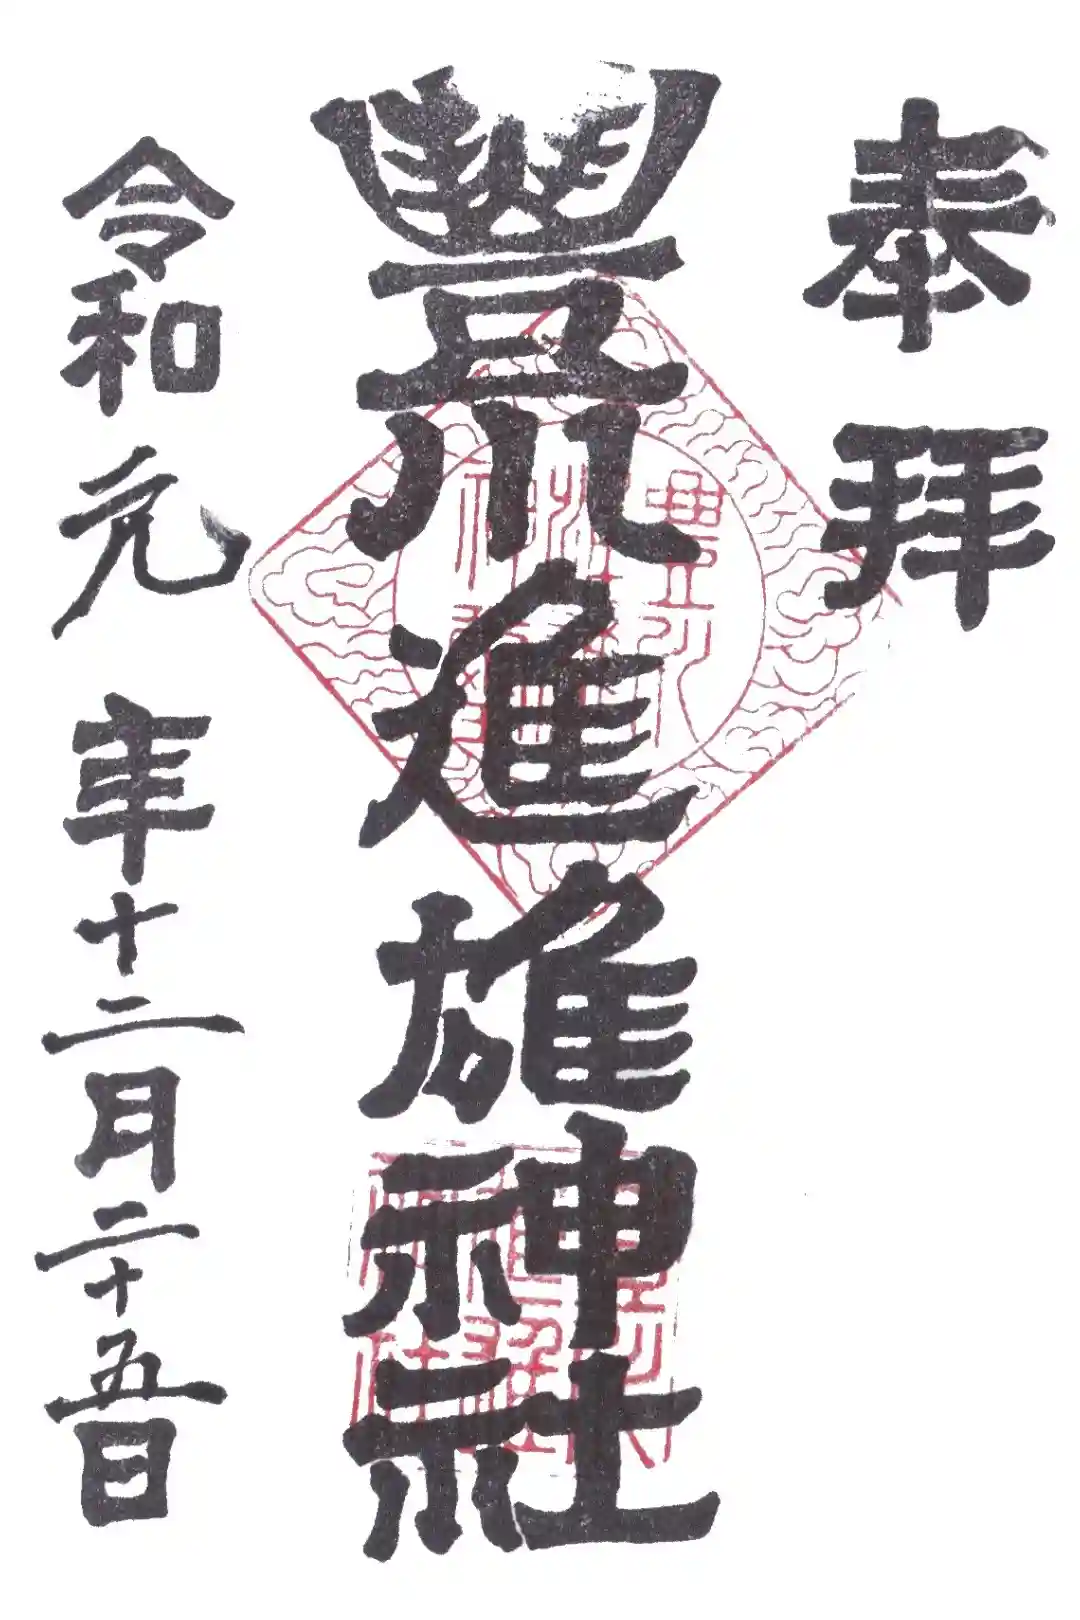 奉拝
豊川進雄神社
令和元年十二月二十五日